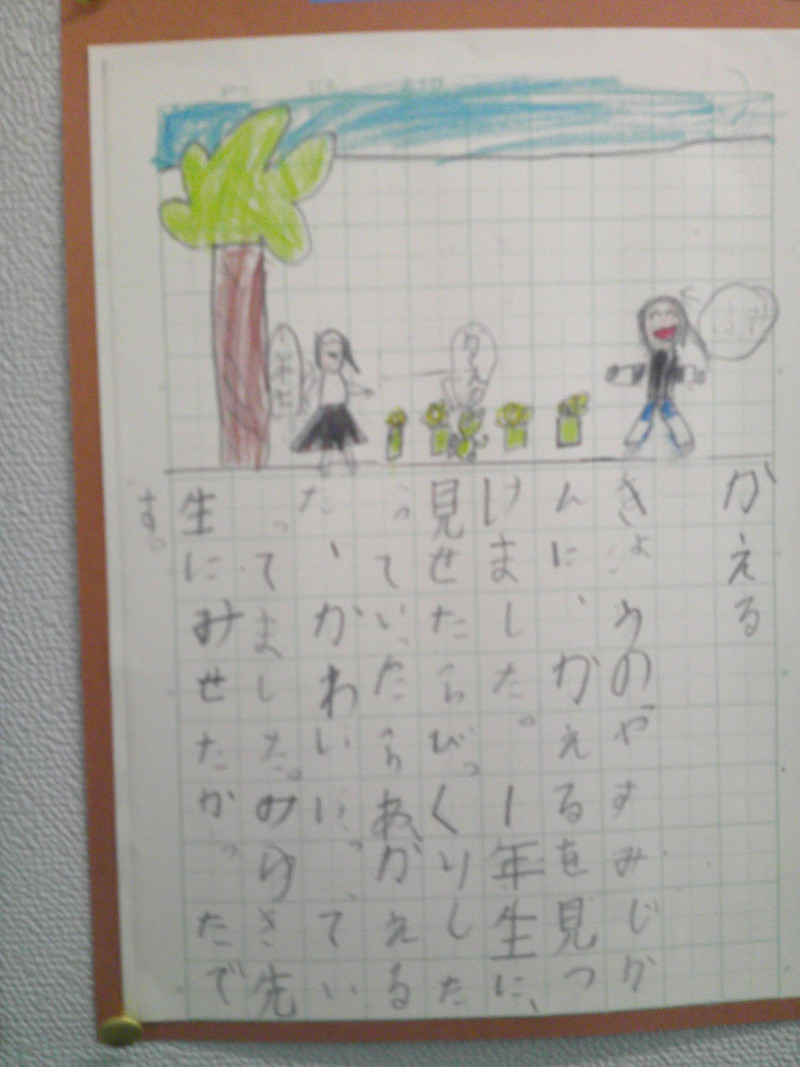 かえる
きょうのやすみじか
んに、かえるを見つ
けました。1年生に、
見せたらびっくりした
っていたらあ、かえる
た、かわいいっ、てい
ってました。みゆき先
生にみせたかったで
す。